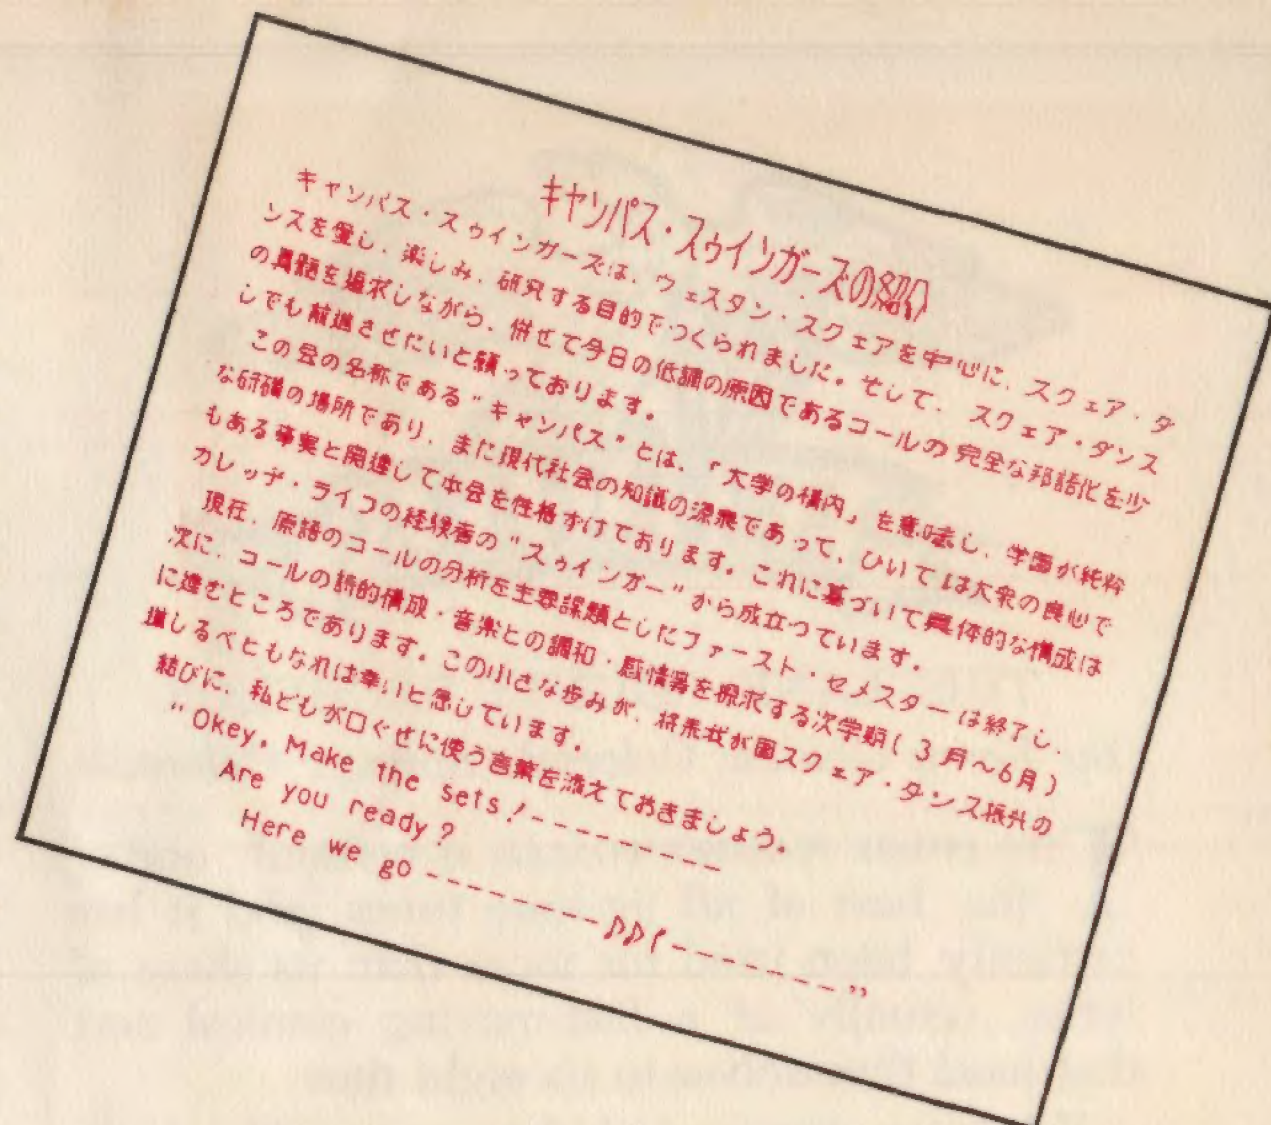 キャンパス・スゥインガーズの紹介
キャンパス・スゥインガーズは、ウェスタン・スクェアを中心に、スクェア・ダ
ンスを愛し、楽しみ、研究する目的でつくられました。そして、スクェア・ダンス
の真髄を追求しながら、併せて今日の低調の原因であるコールの完全な邦語化を少
しでも前進させたいと願っております。
この会の名称である“キャンパス”とは、「大学の構内」を意味し、学園が純粋
な研磨の場所であり、また現代社会の知識の源泉であって、ひいては大衆の良心で
もある事実と関連して本会を性格ずけております。これに基づいて具体的な構成は
カレッヂ・ライフの経験者の“スゥインガー”から成立っています。
現在、原語のコールの分析を主要課題としたファースト・セメスターは終了し、
次に、コールの詩的構成・音楽との調和・感情等を探求する次学期(3月〜6月)
に進むところであります。この小さな歩みが、将来我が国スクェア・ダンス振興の
道しるべともなれば幸いと念じています。
結びに、私どもが口ぐせに使う言葉を添えておきましょう。
“Okey, Make the sets!---------
Are you ready?
Here we go---------♪♪!--------”